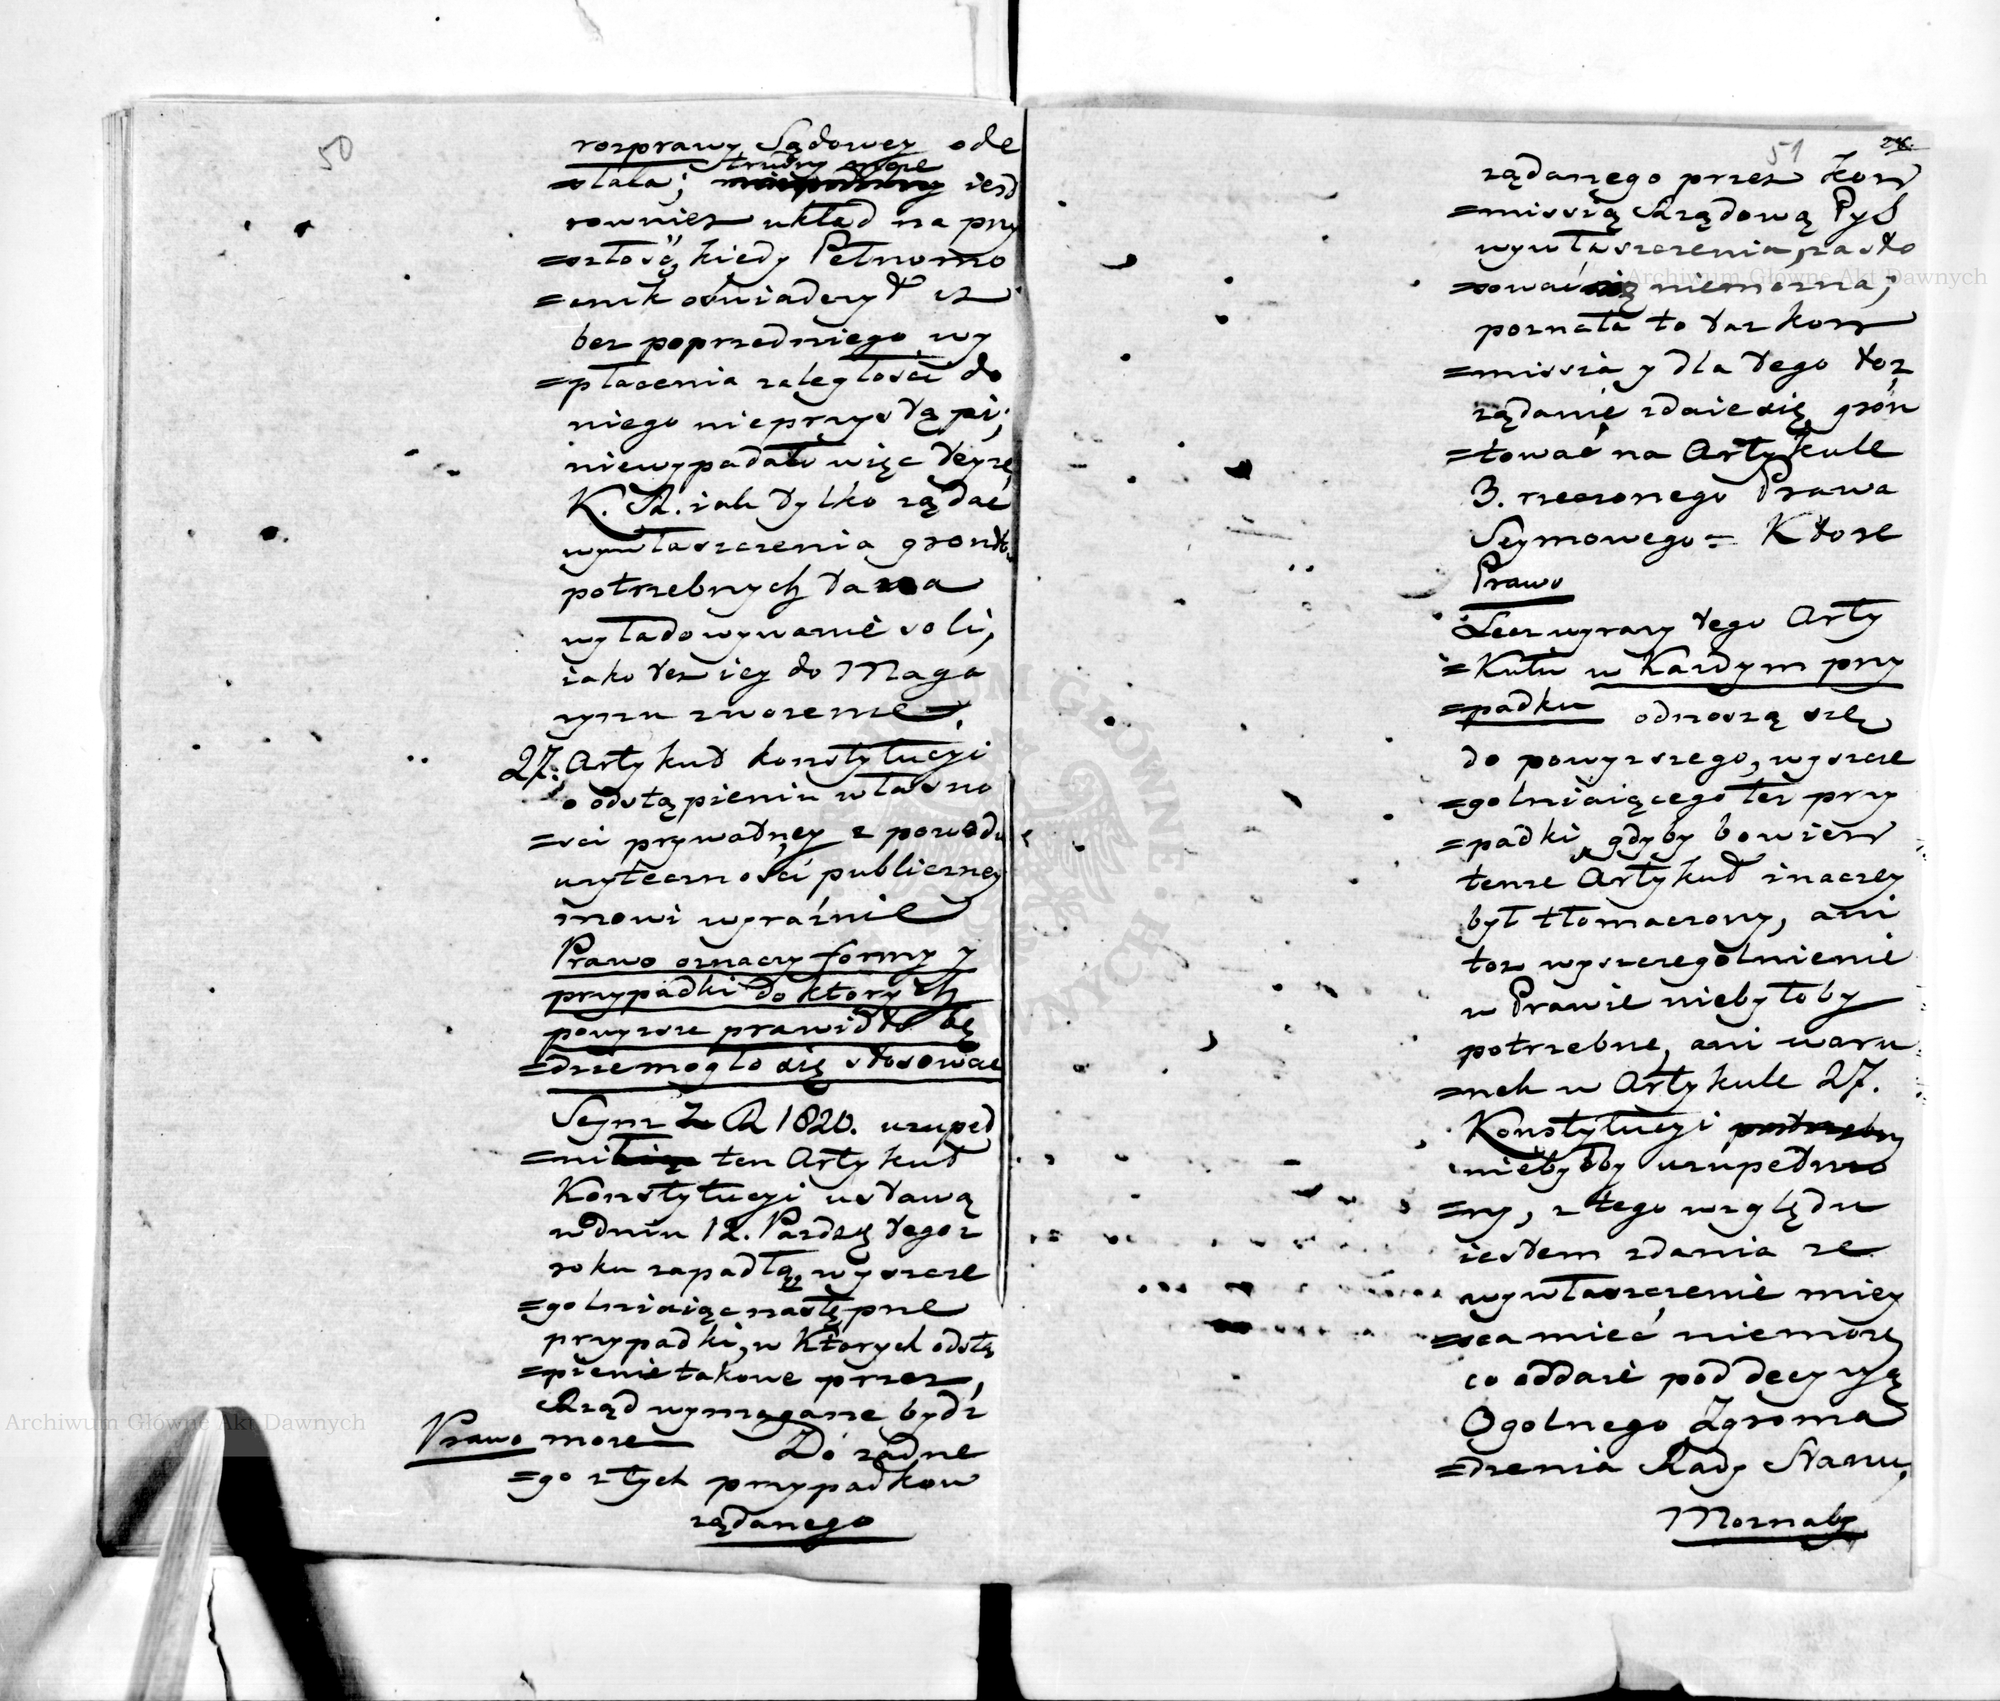 50
rozprawy Sądowey ode
=słała; trudny może iest
rownież układ na przy
=szłość, kiedy Pełnomo
=cnik oświadczył iż
bez poprzedniego wy
=płacenia zaległości do
niego nieprzystąpi;
niewypadało więc teyże
K. R. iak tylko żądać
wywłaszczenia grontow
potrzebnych ta na
wyładowywanie soli,
iako też iey do Maga
zynu zwożenie.
27. Artykuł konstytucyi
o odstąpieniu własno
=ści prywatney z powodu
użyteczności publiczney
mowi wyraźnie
Prawo oznaczy formy y
przypadki do ktorych
powyższe prawidło bę
=dzie mogło się stosować
Seym Z R 1820. uzupeł
=nił ten Artykuł
Konstytucyi ustawą
w dniu 12. Paźdz. tegoż
roku zapadłą, wyszcze
=golniaiąc następne
przypadki, w ktorych odstą
=pienie takowe przez
Rząd wymagane bydź
Prawo może Do żadne
=go z tych przypadkow
żądanego
51
żądanego przez Kom
=missią Rządową PyS
wywłaszczenia, zasto
=sować się niemożna;
poznała to taż Kom
=missia y dla tego toż
żądanie zdaie się gron
=tować na Artykule
3. rzeczonego Prawa
Seymowego = Ktore
Prawo
Lecz wyrazy tego Arty
=kułu w Każdym przy
=padku odnoszą się
do powyższego, wyszcze
=golniaiącego też przy
=padki, gdyby bowiem
tenże Artykuł inaczey
był tłomaczony, ani
toż wyszczegolnienie
w Prawie niebyłoby
potrzebne, ani waru
=nek w Artykule 27.
Konstytucyi potrzebny
niebyłby uzupełnio
=ny, z tego względu
iestem zdania że
wywłaszczenie miey
=sca mieć niemoże
co oddaie pod decyzyą
Ogolnego Zgroma
=dzenia Rady Stanu,
Możnaby
Archiwum Główne Akt Dawnych
Archiwum Główne Akt Dawnych